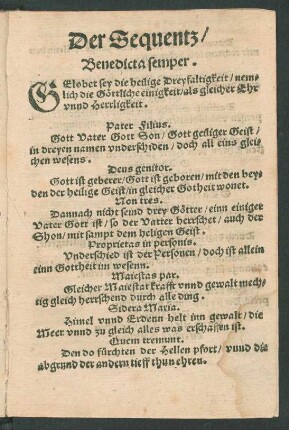 Der Sequentz/
Benedicta semper.
GElobet sey die heilige Dreyfaltigkeit/ nem⸗
lich die Göttliche einigkeit/ als gleicher Ehr
vnnd Herrligkeit.
Pater Filius.
Gott Vater Gott Son/ Gott geistiger Geist/
in dreyen namen vnderschiden/ doch all eins glei⸗
chen wesens.
Deus genitor.
Gott ist geberer/ Gott ist geboren/ mit den beyd
den der heilige Geist/ in gleicher Gotheit wonet.
Non tres.
Dannach nicht seind drey Götter/ einn einiger
Vater Gott ist/ so der Vatter herrschet/ auch der
Shon/ mit sampt dem heligen Geist.
Proprietas in personis.
Vnderschied ist der Personen/ doch ist allein
einn Gottheit im wesenn.
Maiestas par.
Gleicher Maiestat krafft vnnd gewalt mech⸗
tig gleich herrschend durch alle ding.
Sidera Maria.
Himel vnnd Erdenn helt inn gewalt/ die
Meer vnnd zu gleich alles was erschaffen ist.
Quem tremunt.
Den do fürchten der Hellen pfort/ vnnd die
abgrund der andern tieff thun ehren.